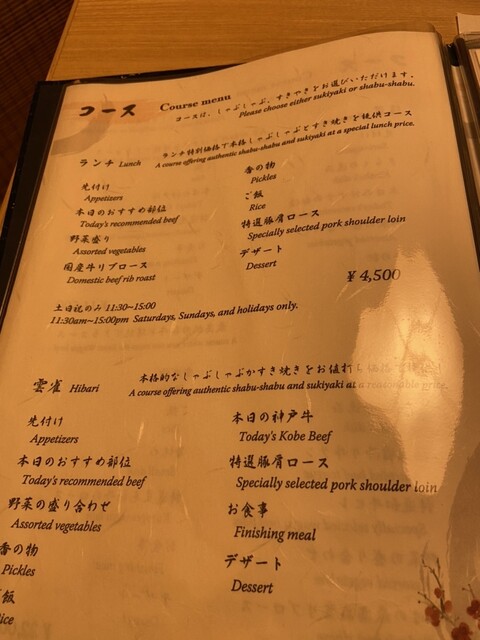 コース Course menu
コースは、しゃぶしゃぶ、すきやきをお選びいただけます。
Please choose either sukiyaki or shabu-shabu.
ランチ Lunch
ランチ特別価格で本格しゃぶしゃぶとすき焼きを提供コース
A course offering authentic shabu-shabu and sukiyaki at a special lunch price.
先付け
Appetizers
本日のおすすめ部位
Today's recommended beef
野菜盛り
Assorted vegetables
国産牛リブロース
Domestic beef rib roast
香の物
Pickles
ご飯
Rice
特選豚肩ロース
Specially selected pork shoulder loin
デザート
Dessert
¥4,500
土日祝のみ 11:30~15:00
11:30am~15:00pm Saturdays, Sundays, and holidays only.
雲雀 Hibari
本格的なしゃぶしゃぶかすき焼きをお値打
A course offering authentic shabu-shabu and sukiyaki at a reasonable
先付け
Appetizers
本日のおすすめ部位
Today's recommended beef
野菜の盛り合わせ
Assorted vegetables
香の物
Pickles
飯
Rice
本日の神戸牛
Today's Kobe Beef
特選豚肩ロース
Specially selected pork shoulder loin
お食事
Finishing meal
デザート
Dessert